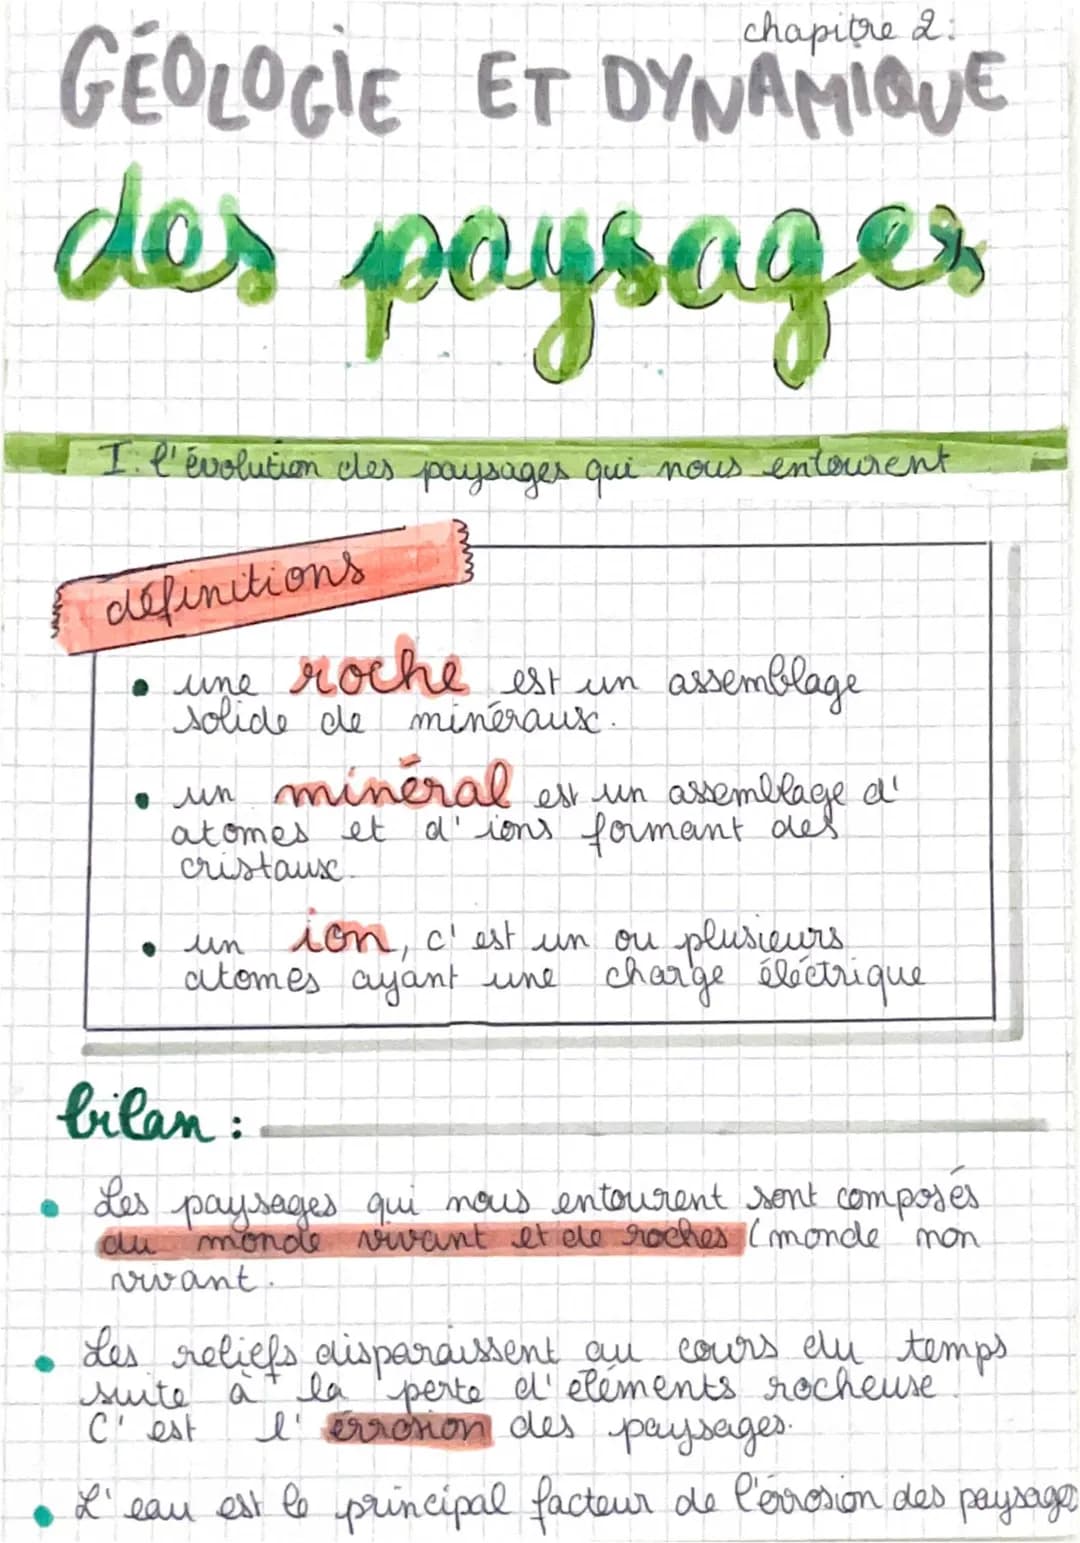 chapitre 2:
GÉOLOGIE ET DYNAMIQUE
des paysages
I. l'évolution des paysages qui nous entourent
définitions
• une roche est un assemblage
solide de minéraux.
• un minéral est un assemblage d'
atomes et d'ions formant des
cristaux.
• un ion, c'est un ou plusieurs
atomes ayant une charge éléctrique
bilan :
• Les paysages qui nous entourent sont composés
du monde vivant et de roches (monde non
vivant.
• Les reliefs disparaissent au cours du temps
suite à la perte d'éléments rocheuse.
C'est l'érrosion des paysages.
• L'eau est le principal facteur de l'érrosion des paysages